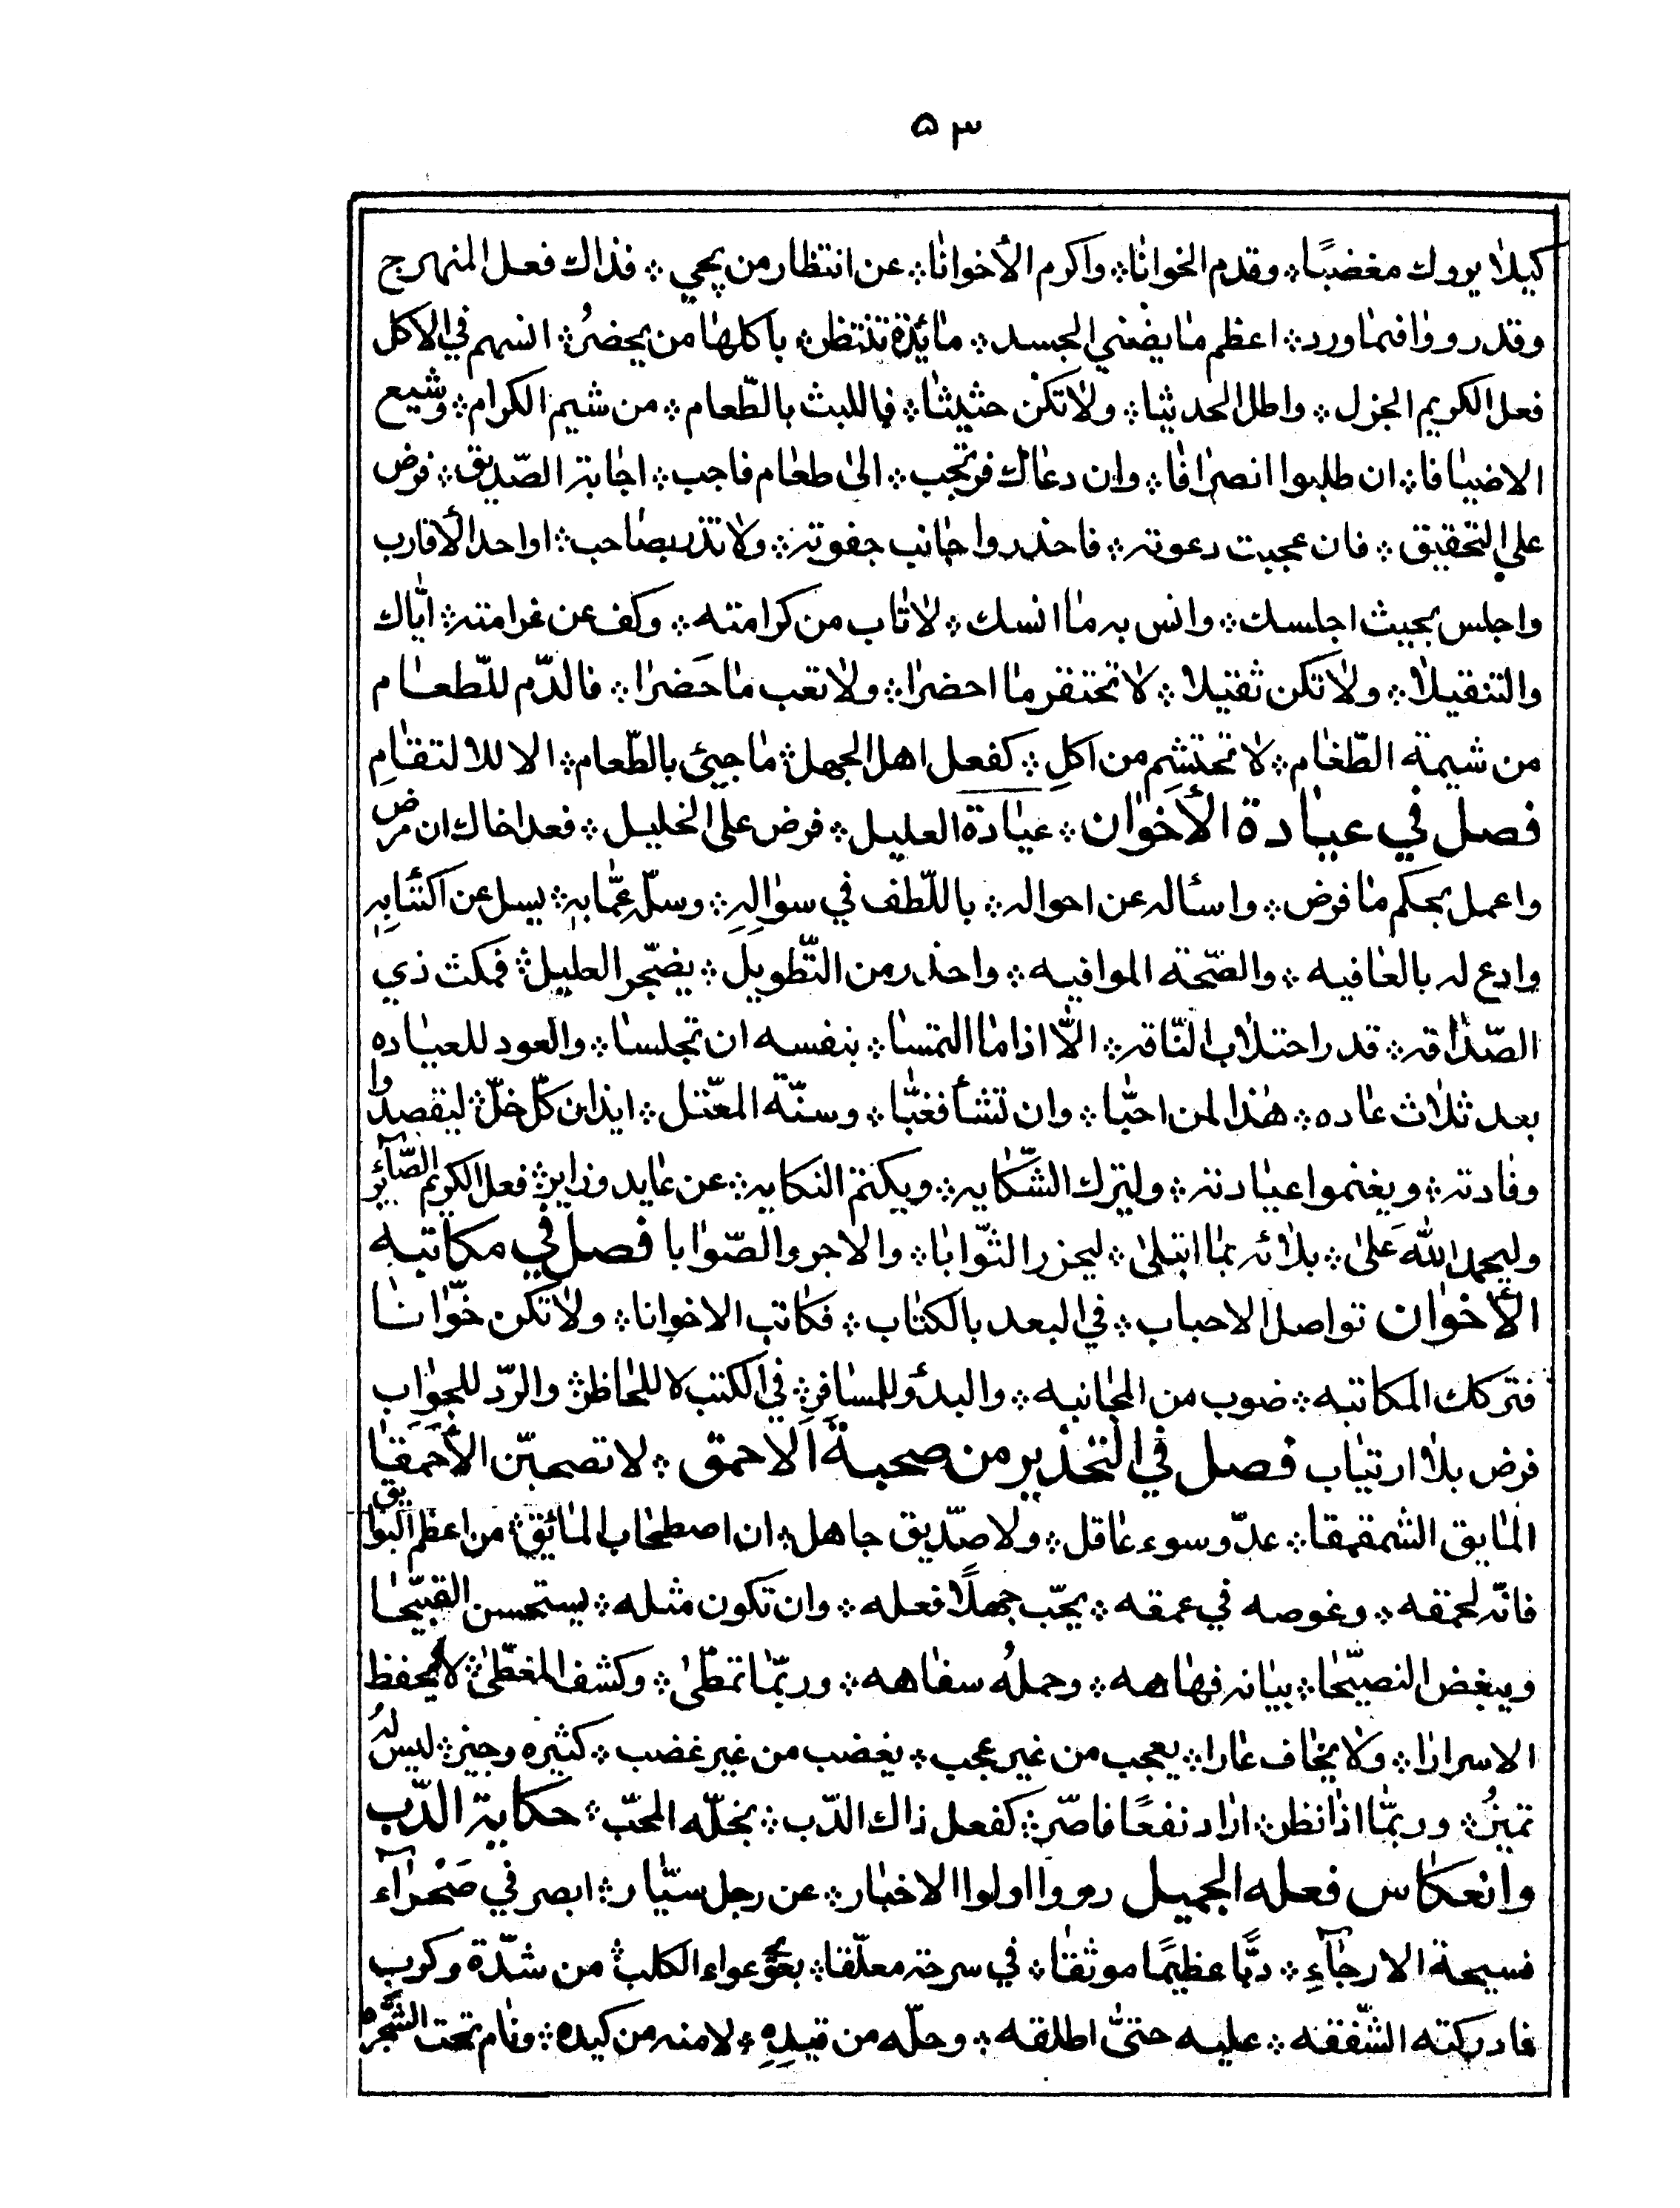 ۵۳
كيلا يروك مغضبًا ؞ وقدم الخوانا ؞ واكرم الأخوانا ؞ عن انتظار من يجي ؞ فذاك فعل المنهرج
وقد رووا فيما ورد ؞ اعظم ما يضني الجسد ؞ مائدة تنتظر ؞ باكلها من يحضرُ ؞ انسهم في الاكل
فعل الكريم الجزل ؞ واطل الحديثا ؞ ولا تكن حثيثا ؞ فاللبث بالطّعام ؞ من شيم الكرام ؞ وشيع
الاضيافا ؞ ان طلبوا انصرافا ؞ وان دعاك فرتجب ؞ الى طعام فاجب ؞ اجابة الصّديق ؞ فرض
على التحقيق ؞ فان عجبت دعوته ؞ فاحذروا جانب جفوته ؞ ولا تذر بصاحب ؞ او احد الأقارب
واجلس بحيث اجلسك ؞ وانس به ما انسك ؞ لا تاب من كرامته ؞ وكف عن غرامته ؞ ايّاك
والتنقيلا ؞ ولا تكن ثقيلا ؞ لا تحتقر ما احضرا ؞ ولا تعب ما حَضرا ؞ فالذّم للّطعام
من شيمة الطّغام ؞ لا تحتشم من اكلِ ؞ كفعل اهل الجهل ؞ ما جيئ بالطّعام ؞ الا للالتقامِ
فصل في عيادة الأَخوان ؞ عيادة العليل ؞ فرض على الخليل ؞ فعد اخاك ان مرض
واعمل بحكم ما فرض ؞ واسأله عن احواله ؞ باللّطف في سوالِهِ ؞ وسله عمّا به ؞ يسل عن اكتئابِهِ
وادع له بالعافيه ؞ والصّحة الموافيه ؞ واحذر من التّطويل ؞ يضجّر العليل ؞ فمكث ذي
الصّداقه ؞ قدر احتلاب النّاقه ؞ الّا اذا ما التمسا ؞ بنفسه ان تجلسا ؞ والعود للعياده
بعد ثلاث عاده ؞ هذا لمن احبّا ؞ وان تشأ فغبّا ؞ وسنّة المعّتل ؞ ايذان كلّ خلّ ؞ ليقصدوا
وفادته ؞ ويغنموا عيادته ؞ وليترك الشّكايه ؞ ويكتم النكايه ؞ عن عايد وزاير ؞ فعل الكريم الصّائر
وليحمد الله عَلى ؞ بلائه بما ابتلى ؞ ليحرز الثّوابا ؞ والاجر والصّوابا فصل في مكاتبه
الأخوان تواصل الاحباب ؞ في البعد بالكتاب ؞ فكاتب الاخوانا ؞ ولا تكن خّوانا
فتركك المكاتبه ؞ ضوب من المجانبه ؞ والبدؤ للمسافر ؞ في الكتب لا للحاظر ؞ والرّد للجواب
فرض بلا ارتياب فصل في التحذير من صحبة الاحمق ؞ لا تصحبّن الأحمقا
المايق الشمقمقا ؞ عدّو سوء عاقل ؞ ولا صّديق جاهل ؞ ان اصطحاب المائق ؞ من اعظم البوايق
فانّه لحمقه ؞ وغوصه في عمقه ؞ يحّب جهلًا فعله ؞ وان تكون مثله ؞ يستحسن القبيّحا
ويبغض النصيّحا ؞ بيانه فهاهه ؞ وحملُه سفاهه ؞ وربّما تمطّى ؞ وكشف المغطّى ؞ لا يحفظ
الاسرارا ؞ ولا يخاف عارا ؞ يعجب من غير عجب ؞ يغضب من غير غضب ؞ كثيره وجيز ؞ ليس لهُ
تميزُ ؞ وربّما اذا نظر ؞ اراد نفعًا فاضّر ؞ كفعل ذاك الدّب ؞ بخلّه المحبّ ؞ حكاية الدّب
وانعكاس فعله الجميل رووا اولوا الاخبار ؞ عن رجل سيّار ؞ ابصر في صَحْراء
فسيحة الارجاءِ ؞ دبًّا عظيمًا موثقا ؞ في سرحة معلّقا ؞ يعوي عواء الكلب ؞ من شدّة وكرب
فادركته الشّفقه ؞ عليه حتىّ اطلقه ؞ وحلّه من قيدِهِ ؞ لامنه من كيده ؞ ونام تحت الشّجره